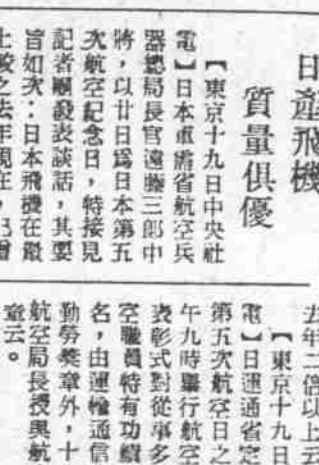 日產飛機
質量俱優
【東京十九日中央社
電】日本軍需省航空兵
器總局長官遠藤三郎中
將，以廿日爲日本第五
次航空紀念日，特接見
記者團發表談話，其要
旨如次：日本飛機在數
上較之去年現在，已增
去年二倍以上云
【東京十九日
電】日運通省定
第五次航空日之
午九時舉行航空
表彰式對從事多
空職員特有功績
名，由運輸通信
勤勞獎章外，十
航空局長授與航
章云。